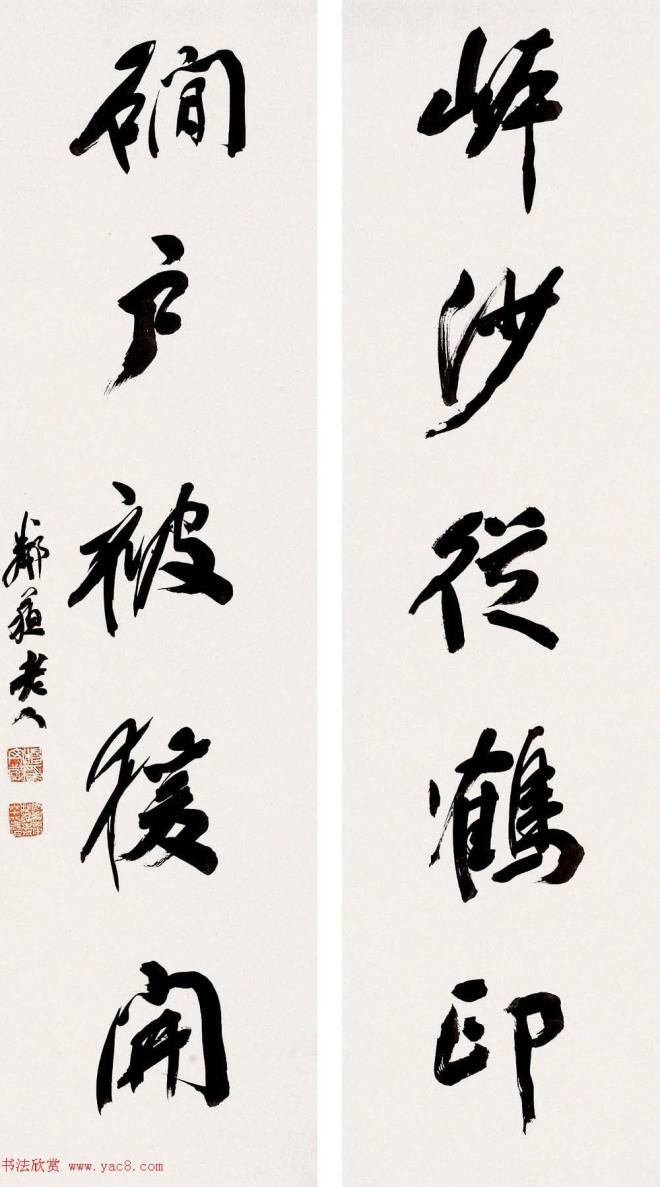 岸沙從鶴印
磵户被猨開
鄰蘇老人
书法欣赏 www.yac8.com